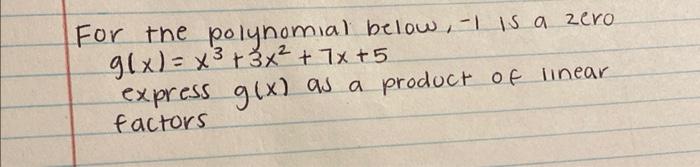 For the polynomial below, -1 is a zero
g(x) = x³ + 3x² + 7x + 5
express g(x) as a product of linear
factors